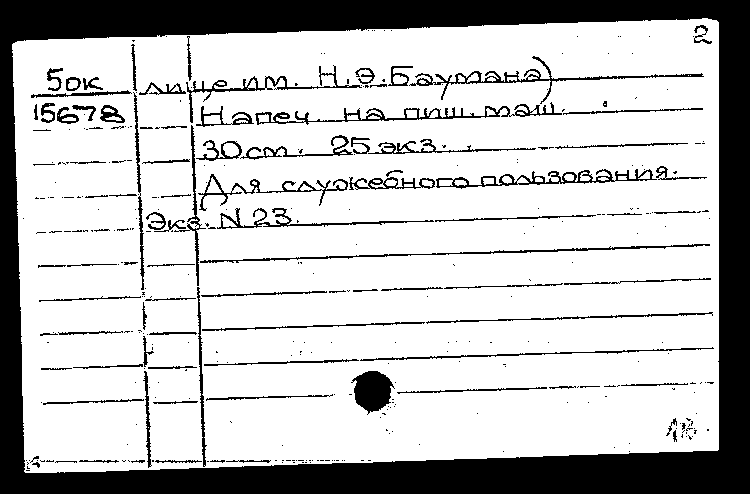 2
5ок лище им. Н.Э.Баумана)
15678 Напеч. на пиш. маш.
30 см. 25 экз.
Для служебного пользования.
Экз. N 23.